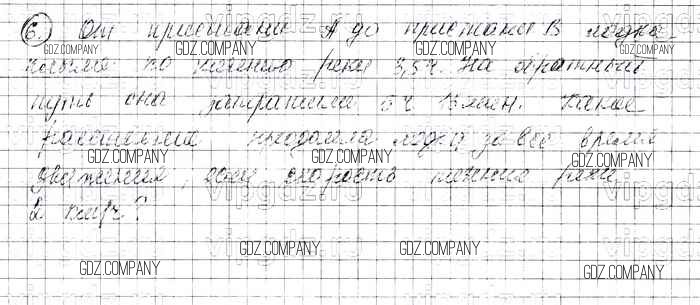 6. От пристани А до пристани В лодка
GDZ.COMPANY GDZ.COMPANY GDZ.COMPANY
плыла по течению реки 3,5 ч. На обратный
путь она затратила 5 ч 15 мин. Какое
GDZ.COMPANY GDZ.COMPANY
расстояние преодолела лодка за все время
GDZ.COMPANY GDZ.COMPANY GDZ.COMPANY
движения, если скорость течения реки
2 км/ч?
GDZ.COMPANY GDZ.COMPANY
GDZ.COMPANY GDZ.COMPANY